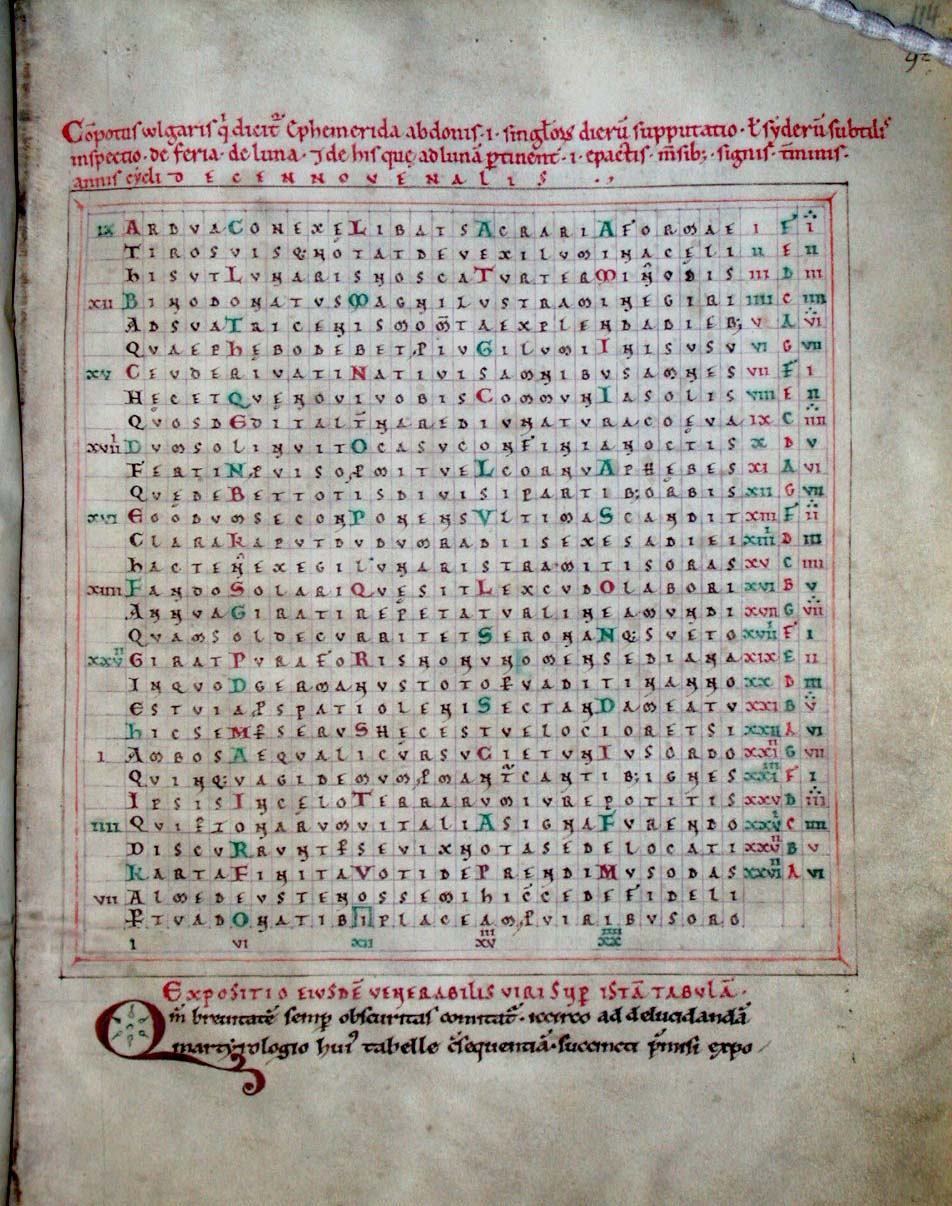 Cōpotus vulgaris q̄ dicit̄ Ephemerida abdonis · i · singloꝝ dierū supputatio · ł syderū subtilis
inspectio · de feria · de luna · ⁊ de his que ad lunā ꝑtinent · i · epactis · m̄sib; · signis · t̄minis ·
annis cycli DECENNOVENALIS
IX ARDVACONEXELIBATSACRARIAFORMAE I F I
TIROSVISQ:NOTATDEVEXILVMINACELI II E II
HISVTLVNARISNOSCATVRTERMINꝰODIS III D III
XII BINODONATVSMAGNILVSTRAMINEGIRI IIII C IIII
ADSVATRICENISMOM̄TAEXPLENDADIEB; V A VI
QVAEPHEBODEBET,PIVGILVMINISVSV VI G VII
XV CEVDERIVATINATIVISAMNIBVSAMNES VII F I
HECETQVENOVIVOBISCOMMVNIASOLIS VIII E II
QVOSDEDITALT̄NAREDIVNATVRACOEVA IX C IIII
XVIII DVMSOLINVITOCASVCONFINIANOCTIS X D V
FERTINꝑVISOꝓMITVELCORNVAPHEBES XI A VI
QVEDEBETTOTISDIVISIPARTIB;ORBIS XII G VII
XVI EOODVMSECONPONENSVLTIMASCANDIT XIII F II
CLARARAPVTDVDVMRADIISEXESADIEI XIIII D III
HACTENEXEGILVNARISTRAMITISORAS XV C IIII
XIIII FANDOSOLARIQVESITLEXCVDOLABORI XVI B V
ANNVAGIRATIREPETATVRLINEAMVNDI XVII G VII
QVAMSOLDECVRRITETSERONANQ:SVETO XVIII F I
XXVII GIRATPVRAFORISNONVNOMENSEDIANA XIX E II
INQVODGERMANVSTOTOꝑVADITINANNO XX D III
ESTVIAꝑSPATIOLENISECTANDAMEATV XXI B V
HICSEMꝑSERVSHECESTVELOCIORETSI XXII A VI
I AMBOSAEQVALICVRSVCIETVNIVSORDO XXIII G VII
QVINQ:VAGIDEMVMꝓMANT̄CANTIB;IGNES XXIIII F I
IPSISINCELOTERRARVMIVREPOTITIS XXV D III
IIII QVIPTONARVMVITALIASIGNAFVRENDO XXVI C IIII
DISCVRRVNTꝑSEVIXNOTASEDELOCATI XXVII B V
KARTAFINITAVOTIDEPRENDIMVSODAS XXVIII A VI
VII ALMEDEVSTENOSSEMIHIC̄C̄EDEFIDELI
ꝐTVADONATIBIPLACEAMꝓVIRIBVSORO
I VI XII XVIII XXIIII
EXPOSITIO EIUSDĒ VENERABILIS VIRI SUꝑ ISTĀ TABULĀ ·
Qm̄ breuitatē semꝑ obscuritas comitat̄ · iccirco ad delucidandā
martyrologio huiꝰ tabelle c̄sequentiā · succincti p̄misi expo